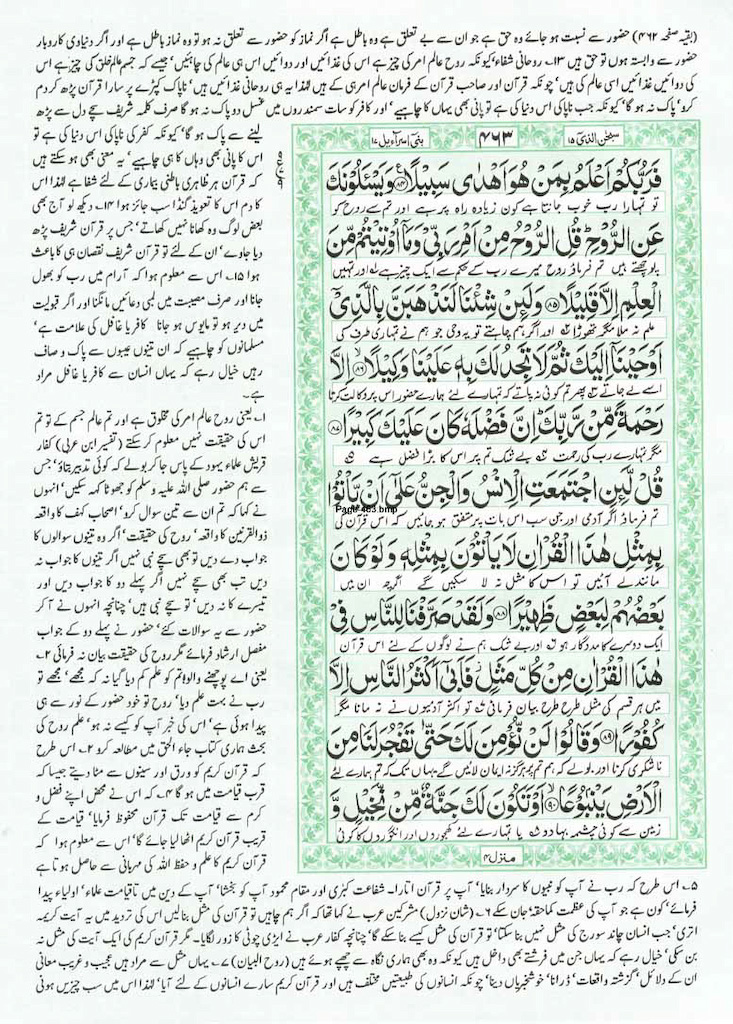 (بقیہ صفحہ ۴۶۲) حضور سے نسبت ہو جائے وہ حق ہے جو ان سے بے تعلق ہے وہ باطل ہے اگر نماز کو حضور سے تعلق نہ ہو تو وہ نماز باطل ہے اور اگر دنیاوی کاروبار
سے وابستہ ہوں تو حق ہیں ۱۳۔ روحانی شفاء، کیونکہ روح عالم امر کی چیز ہے اس کی غذائیں اور دوائیں اس ہی عالم کی چاہئیں، جیسے کہ جسم عالم خلق کی چیز ہے اس
کی دوائیں غذائیں اسی عالم کی ہیں، چونکہ قرآن اور صاحب قرآن کے فرمان عالم امر ہی کے ہیں لہٰذا یہ ہی روحانی غذائیں ہیں، ناپاک کپڑے پر سارا قرآن پڑھ کر دم
کرو، پاک نہ ہو گا، کیونکہ جب ناپاکی اس دنیا کی ہے تو پانی بھی یہاں کا چاہیے، اور کافر کو سات سمندروں میں غسل دو پاک نہ ہو گا صرف کلمہ شریف سچے دل سے پڑھ
لینے سے پاک ہو گا، کیونکہ کفر کی ناپاکی اس دنیا کی ہے تو
اس کا پانی بھی وہاں کا ہی چاہیے، یہ معنی بھی ہو سکتے ہیں
کہ قرآن ہر ظاہری باطنی بیماری کے لئے شفا ہے لہٰذا اس
کا دم اس کا تعویذ گنڈا سب جائز ہوا ۱۴۔ دیکھ لو آج بھی
بعض لوگ وہ کھانا نہیں کھاتے، جس پر قرآن شریف پڑھ
دیا جاوے، ان کے لئے تو قرآن شریف نقصان ہی کا باعث
ہوا ۱۵۔ اس سے معلوم ہوا کہ آرام میں رب کو بھول
جانا اور صرف مصیبت میں لمبی دعائیں مانگنا اور اگر قبولیت
میں دیر ہو تو مایوس ہو جانا کافر یا غافل کی علامت ہے،
مسلمانوں کو چاہیے کہ ان تینوں عیبوں سے پاک و صاف
رہیں خیال رہے کہ یہاں انسان سے کافر یا غافل مراد
ہے۔
۱۔ یعنی روح عالم امر کی مخلوق ہے اور تم عالم جسم کے تو تم
اس کی حقیقت نہیں معلوم کر سکتے (تفسیر ابن عربی) کفار
قریش علماء یہود کے پاس جا کر بولے کہ کوئی تدبیر بتاؤ، جس
سے ہم حضور صلی اللہ علیہ وسلم کو جھوٹا کہہ سکیں، انہوں
نے کہا کہ تم ان سے تین سوال کرو، اصحاب کہف کا واقعہ
ذوالقرنین کا واقعہ، روح کی حقیقت، اگر وہ تینوں سوالوں کا
جواب دے دیں تو بھی سچے نبی نہیں اگر تینوں کا جواب نہ
دیں تب بھی سچے نہیں اگر پہلے دو کا جواب دیں اور
تیسرے کا نہ دیں، تو سچے نبی ہیں، چنانچہ انہوں نے آ کر
حضور سے یہ سوالات کئے، حضور نے پہلے دو کے جواب
مفصل ارشاد فرمائے مگر روح کی حقیقت بیان نہ فرمائی ۲۔
یعنی اے پوچھنے والو! تم کو علم کم دیا گیا نہ کہ مجھے، مجھے تو
رب نے بہت علم دیا، روح تو خود حضور کے نور سے ہی
پیدا ہوئی ہے، اس کی خبر آپ کو کیسے نہ ہو، علم روح کی
بحث ہماری کتاب جاء الحق میں مطالعہ کرو ۳۔ اس طرح
کہ قرآن کریم کو ورق اور سینوں سے مٹا دیتے جیسا کہ
قرب قیامت میں ہو گا ۴۔ کہ اس نے محض اپنے فضل و
کرم سے قیامت تک قرآن محفوظ فرمایا، قیامت کے
قریب قرآن کریم اٹھا لیا جائے گا، اس سے معلوم ہوا کہ
قرآن کریم کا علم و حفظ اللہ کی مہربانی سے حاصل ہوتا ہے
سبحن الذی ۱۵
۴۶۳
بنی اسرآءیل ۱۷
فَرَبُّكُمْ اَعْلَمُ بِمَنْ هُوَ اَهْدٰى سَبِيْلًا ﴿۸۴﴾ وَيَسْـَٔلُوْنَكَ
تو تمہارا رب خوب جانتا ہے کون زیادہ راہ پر ہے اور تم سے روح کو
عَنِ الرُّوْحِ ؕ قُلِ الرُّوْحُ مِنْ اَمْرِ رَبِّيْ وَمَاۤ اُوْتِيْتُمْ مِّنَ
پوچھتے ہیں تم فرماؤ روح میرے رب کے حکم سے ایک چیز ہے ۱ اور تمہیں
الْعِلْمِ اِلَّا قَلِيْلًا ﴿۸۵﴾ وَلَئِنْ شِئْنَا لَنَذْهَبَنَّ بِالَّذِيْۤ
علم نہ ملا مگر تھوڑا ۲ اور اگر ہم چاہتے تو یہ وحی جو ہم نے تمہاری طرف کی
اَوْحَيْنَاۤ اِلَيْكَ ثُمَّ لَا تَجِدُ لَكَ بِهٖ عَلَيْنَا وَكِيْلًا ﴿۸۶﴾ اِلَّا
اسے لے جاتے ۳ پھر تم کوئی نہ پاتے کہ تمہارے لئے ہمارے حضور اس پر وکالت کرتا
رَحْمَةً مِّنْ رَّبِّكَ ؕ اِنَّ فَضْلَهٗ كَانَ عَلَيْكَ كَبِيْرًا ﴿۸۷﴾
مگر تمہارے رب کی رحمت ۴ بے شک تم پر اس کا بڑا فضل ہے ۵
قُلْ لَّئِنِ اجْتَمَعَتِ الْاِنْسُ وَالْجِنُّ عَلٰۤى اَنْ يَّاْتُوْا
Page 463.bmp
تم فرماؤ اگر آدمی اور جن سب اس بات پر متفق ہو جائیں کہ اس قرآن کی
بِمِثْلِ هٰذَا الْقُرْاٰنِ لَا يَاْتُوْنَ بِمِثْلِهٖ وَلَوْ كَانَ
مانند لے آئیں تو اس کا مثل نہ لا سکیں گے اگرچہ ان میں
بَعْضُهُمْ لِبَعْضٍ ظَهِيْرًا ﴿۸۸﴾ وَلَقَدْ صَرَّفْنَا لِلنَّاسِ فِيْ
ایک دوسرے کا مددگار ہو ۶ اور بے شک ہم نے لوگوں کے لئے اس قرآن
هٰذَا الْقُرْاٰنِ مِنْ كُلِّ مَثَلٍ ؗ فَاَبٰۤى اَكْثَرُ النَّاسِ اِلَّا
میں ہر قسم کی مثل طرح طرح بیان فرمائی ۷ تو اکثر آدمیوں نے نہ مانا مگر
كُفُوْرًا ﴿۸۹﴾ وَقَالُوْا لَنْ نُّؤْمِنَ لَكَ حَتّٰى تَفْجُرَ لَنَا مِنَ
ناشکری کرنا اور بولے کہ ہم تم پر ہرگز نہ ایمان لائیں گے یہاں تک کہ تم ہمارے لئے
الْاَرْضِ يَنْۢبُوْعًا ﴿۹۰﴾ اَوْ تَكُوْنَ لَكَ جَنَّةٌ مِّنْ نَّخِيْلٍ وَّ
زمین سے کوئی چشمہ بہا دو ۸ یا تمہارے لئے کھجوروں اور انگوروں کا کوئی
منزل ۴
۵۔ اس طرح کہ رب نے آپ کو نبیوں کا سردار بنایا، آپ پر قرآن اتارا۔ شفاعت کبریٰ اور مقام محمود آپ کو بخشا، آپ کے دین میں تاقیامت علماء، اولیاء پیدا
فرمائے، کون ہے جو آپ کی عظمت کماحقہ، جان سکے ۶۔ (شان نزول) مشرکین عرب نے کہا تھا کہ اگر ہم چاہیں تو قرآن کی مثل بنالیں اس کی تردید میں یہ آیت کریمہ
اتری، جب انسان چاند سورج کی مثل نہیں بنا سکتا، تو قرآن کی مثل کیسے بنا سکے گا، چنانچہ کفار عرب نے ایڑی چوٹی کا زور لگایا۔ مگر قرآن کریم کی ایک آیت کی مثل نہ
بن سکی، خیال رہے کہ یہاں جن میں فرشتے بھی داخل ہیں کیونکہ وہ بھی ہماری نگاہ سے چھپے ہوئے ہیں (روح البیان) ۷۔ یہاں مثل سے مراد ہیں عجیب و غریب معانی
ان کے دلائل، گزشتہ واقعات، ڈرانا، خوشخبریاں دینا، چونکہ انسانوں کی طبیعتیں مختلف ہیں اور قرآن کریم سارے انسانوں کے لئے آیا، لہٰذا اس میں سب چیزیں ہونی